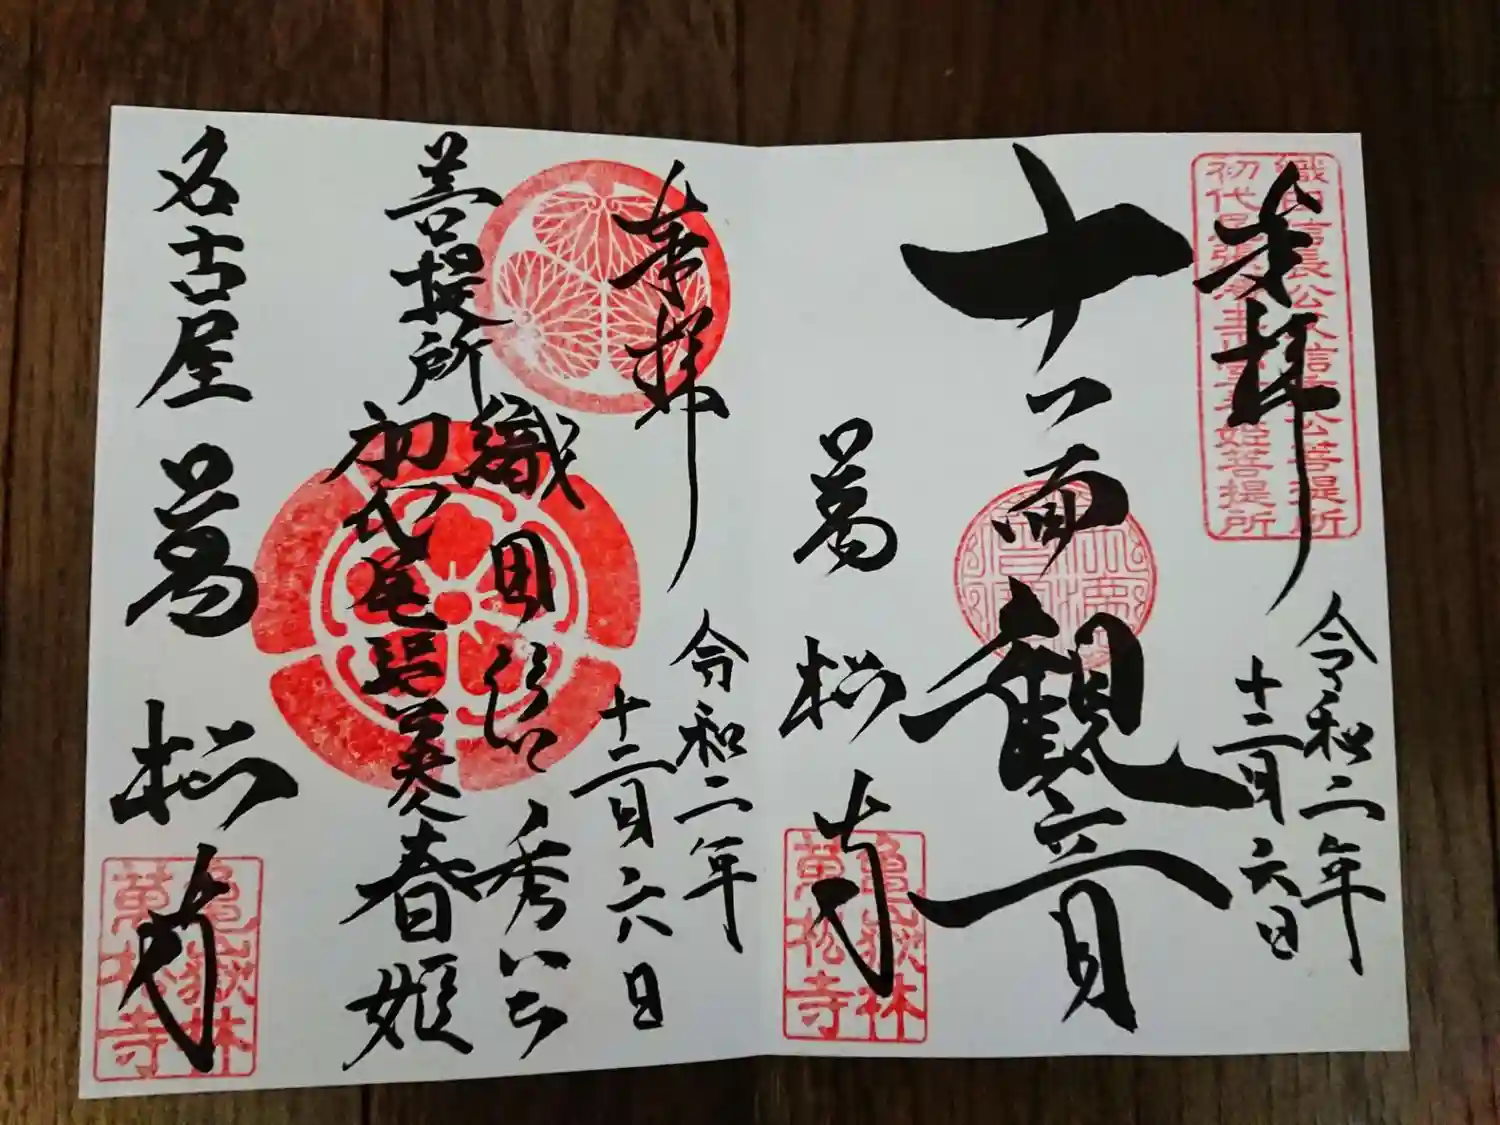 奉拝
織田信長公父信秀公菩提所
初代尾張藩主正室春姫菩提所
令和二年
十二月六日
十一面観音
萬松寺
亀嶽林
萬松寺
奉拝
令和二年
十二月六日
織田信秀公
初代尾張 春姫
菩提所
名古屋 萬松寺
亀嶽林
萬松寺